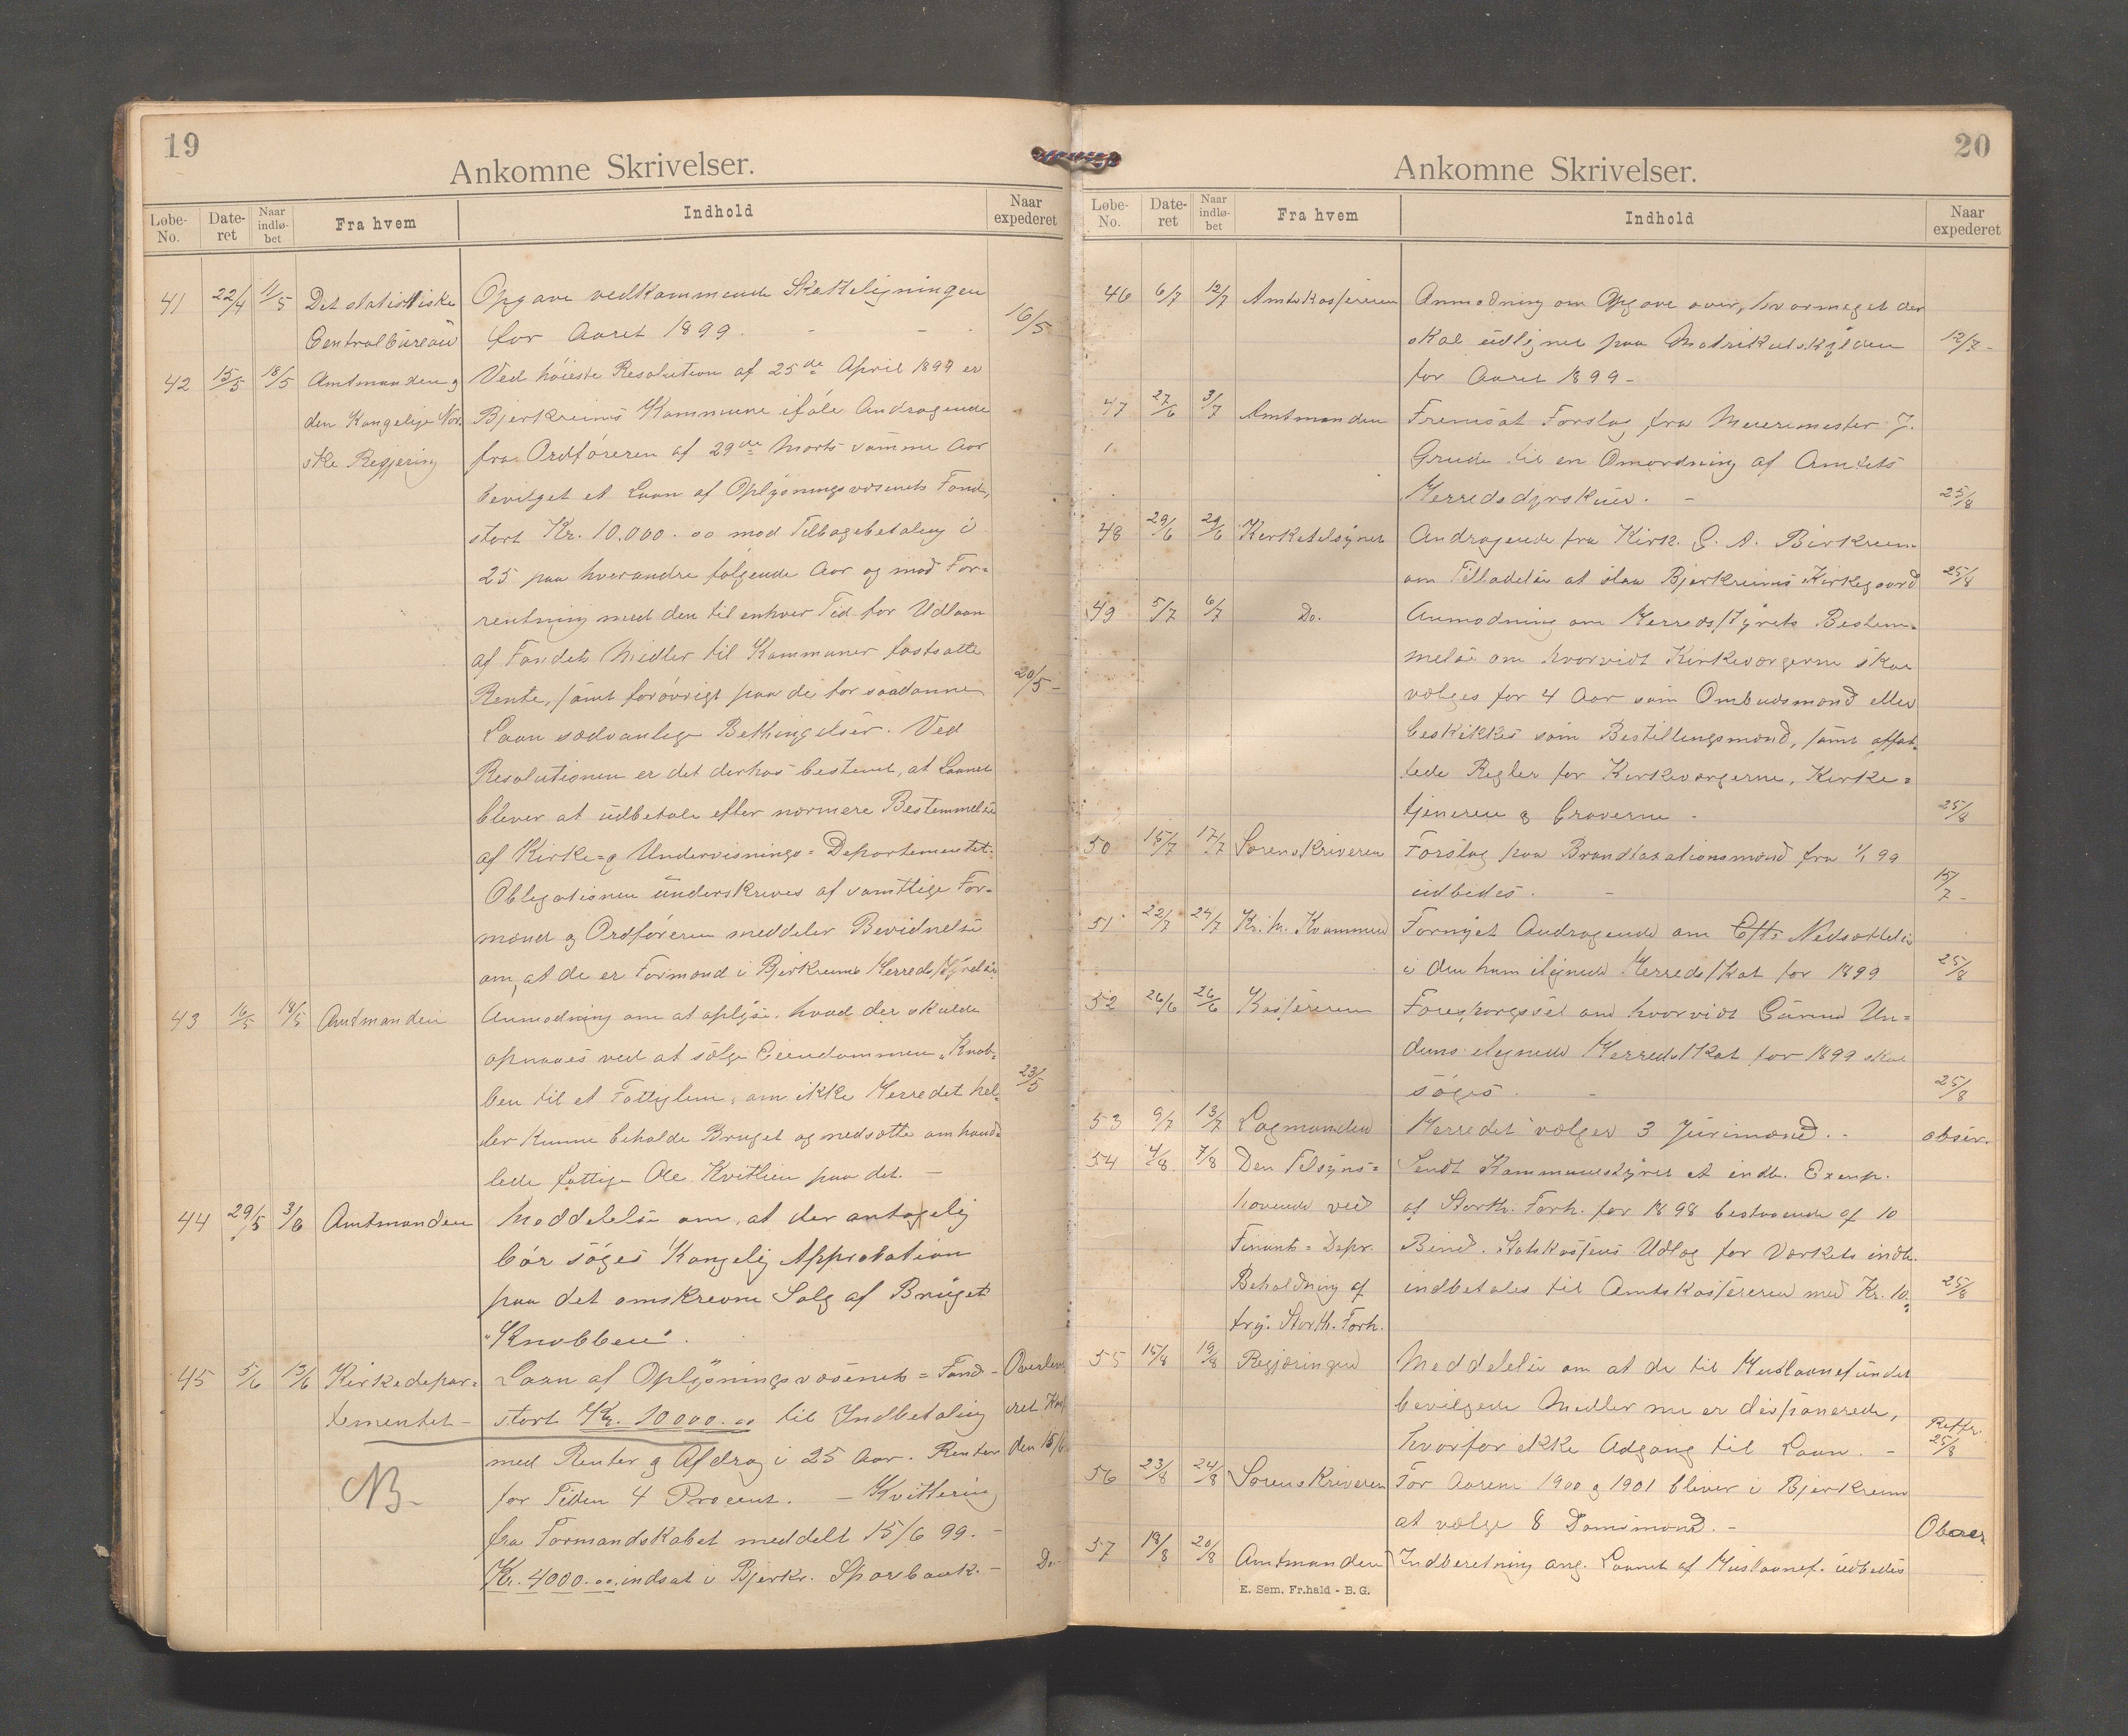 19
Ankomne Skrivelser.
Løbe-No. Date-ret Naar indlø-bet Fra hvem Indhold Naar expederet
41 22/4 11/5 Det statistiske Opgave vedkommende Skatteligningen
Centralbureau for Aaret 1899. - - - 16/5
42 15/5 18/5 Amtmanden og Ved høieste Resolution af 25de April 1899 er
den Kongelige Nor- Bjerkreims Kommune ifølge Andragende
ske Regjering fra Ordføreren af 29de Marts samme Aar
bevilget et Laan af Oplysningsvæsenets Fond,
stort Kr. 10.000.00 mod Tilbagebetaling i
25 paa hverandre følgende Aar og mod For=
rentning med den til enhver Tid for Udlaan
af Fondets Midler til Kommuner fastsatte
Rente, samt forøvrigt paa de for saadanne 20/5 -
Laan sædvanlige Bethingelser. Ved
Resolutionen er det derhos bestemt, at Laanet
bliver at udbetale efter nærmere Bestemmelse
af Kirke= og Undervisnings= Departementet.
Obligationen underskrives af samtlige For=
mænd og Ordføreren meddeler Bevidnelse
om, at de er Formænd i Bjerkreims Herredsstyrelse
43 16/5 18/5 Amtmanden Anmodning om at oplyse, hvad der skulde
opnaaes ved at sælge Eiendommen "Knob-
ben til et Fattiglem, om ikke Herredet hel- 23/5
ler kunne beholde Bruget og nedsætte omhand-
lede fattige Ole Kvitlien paa det. -
44 29/5 3/6 Amtmanden Meddelelse om, at der antagelig
bør søges Kongelig Approbation
paa det omskrevne Salg af Bruget
"Knobben".
45 5/6 13/6 Kirkedepar= Laan af Oplysningsvæsenets= Fond - Overleve
tementet - stort Kr. 10000.00 til Indbetaling ret Kas
med Renter og Afdrag i 25 Aar. Renten den 15/6
NB- for Tiden 4 Procent. - Kvittering
fra Formandskabet meddelt 15/6 99. -
Kr. 4000.00 indsat i Bjerkr. Sparebank. - Do-
20
Ankomne Skrivelser.
Løbe-No. Date-ret Naar indlø-bet Fra hvem Indhold Naar expederet
46 6/7 12/7 Amtskassereren Anmodning om Opgave over, hvormeget der
skal udlignes paa Matrikulskylden 12/7 -
for Aaret 1899 -
47 27/6 3/7 Amtmanden Fremsat Forslag fra Meierimester J.
Grude til en Omordning af Amtets
Herredsdyrskuer. - 25/8
48 29/6 29/6 Kirketilsynet Andragende fra Kirk. G. A. Birkreim
om Tilladelse at slaa Bjerkreims Kirkegaard 25/8
49 5/7 6/7 Do. Anmodning om Herredsstyrets Bestem-
melse om hvorvidt Kirkeværgerne skal
vælges for 4 Aar som Ombudsmænd eller
beskikkes som Bestillingsmænd, samt affat-
tede Regler for Kirkeværgerne, Kirke=
tjeneren og Graverne - 25/8
50 15/7 17/7 Sorenskriveren Forslag paa Brandtaxationsmænd fra 1/1 99
udbedes. - 15/7 -
51 22/7 24/7 Kr. M. Kvammen Fornyet Andragende om Efts Nedsættelse
i den ham ilignede Herredsskat for 1899 25/8
52 26/6 26/6 Kassereren Forespørgsel om hvorvidt Gunnd Un=
duns ilignede Herredsskat for 1899 skal
søges. - 25/8
53 9/7 13/7 Lagmanden Herredet vælger 3 Jurimænd. - obser.
54 4/8 7/8 Den Tilsyns= Sendt Kommunestyret et indb. Exemp.
havende ved af Storth. Forh. for 1898 bestaaende af 10
Finants= Depr. Bind. Statskassens Udlæg for Værkets indb.
Beholdning af indbetales til Amtskassereren med Kr. 10. 25/8
trg. Storth. Forh.
55 15/8 19/8 Regjeringen Meddelelse om at de til Huslaanefundet
bevilgede Midler nu er disponerede,
hvorfor ikke Adgang til Laan. - Reftr. 25/8
56 23/8 24/8 Sorenskriveren For Aarene 1900 og 1901 bliver i Bjerkreim
at vælge 8 Domsmænd. - Obser
57 18/8 20/8 Amtmanden Indberetning ang. Laanet af Huslaanef. udbedes
E. Sem. Fr.hald - B. G.